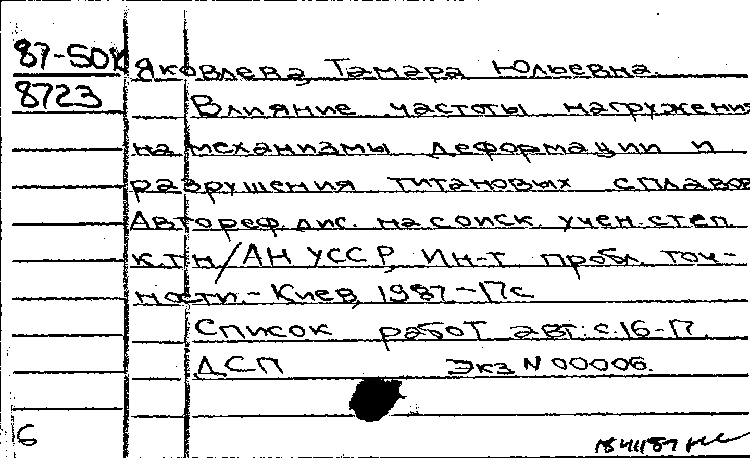 87-50К Яковлева, Тамара Юльевна.
8723 Влияние частоты нагружения
на механизмы деформации и
разрушения титановых сплавов
Автореф. дис. на соиск. учен. степ.
к.т.н/АН УССР, Ин-т пробл. точ-
ности. - Киев, 1987 - 17с
Список работ авт: с.16-17.
ДСП Экз N 00006.
6